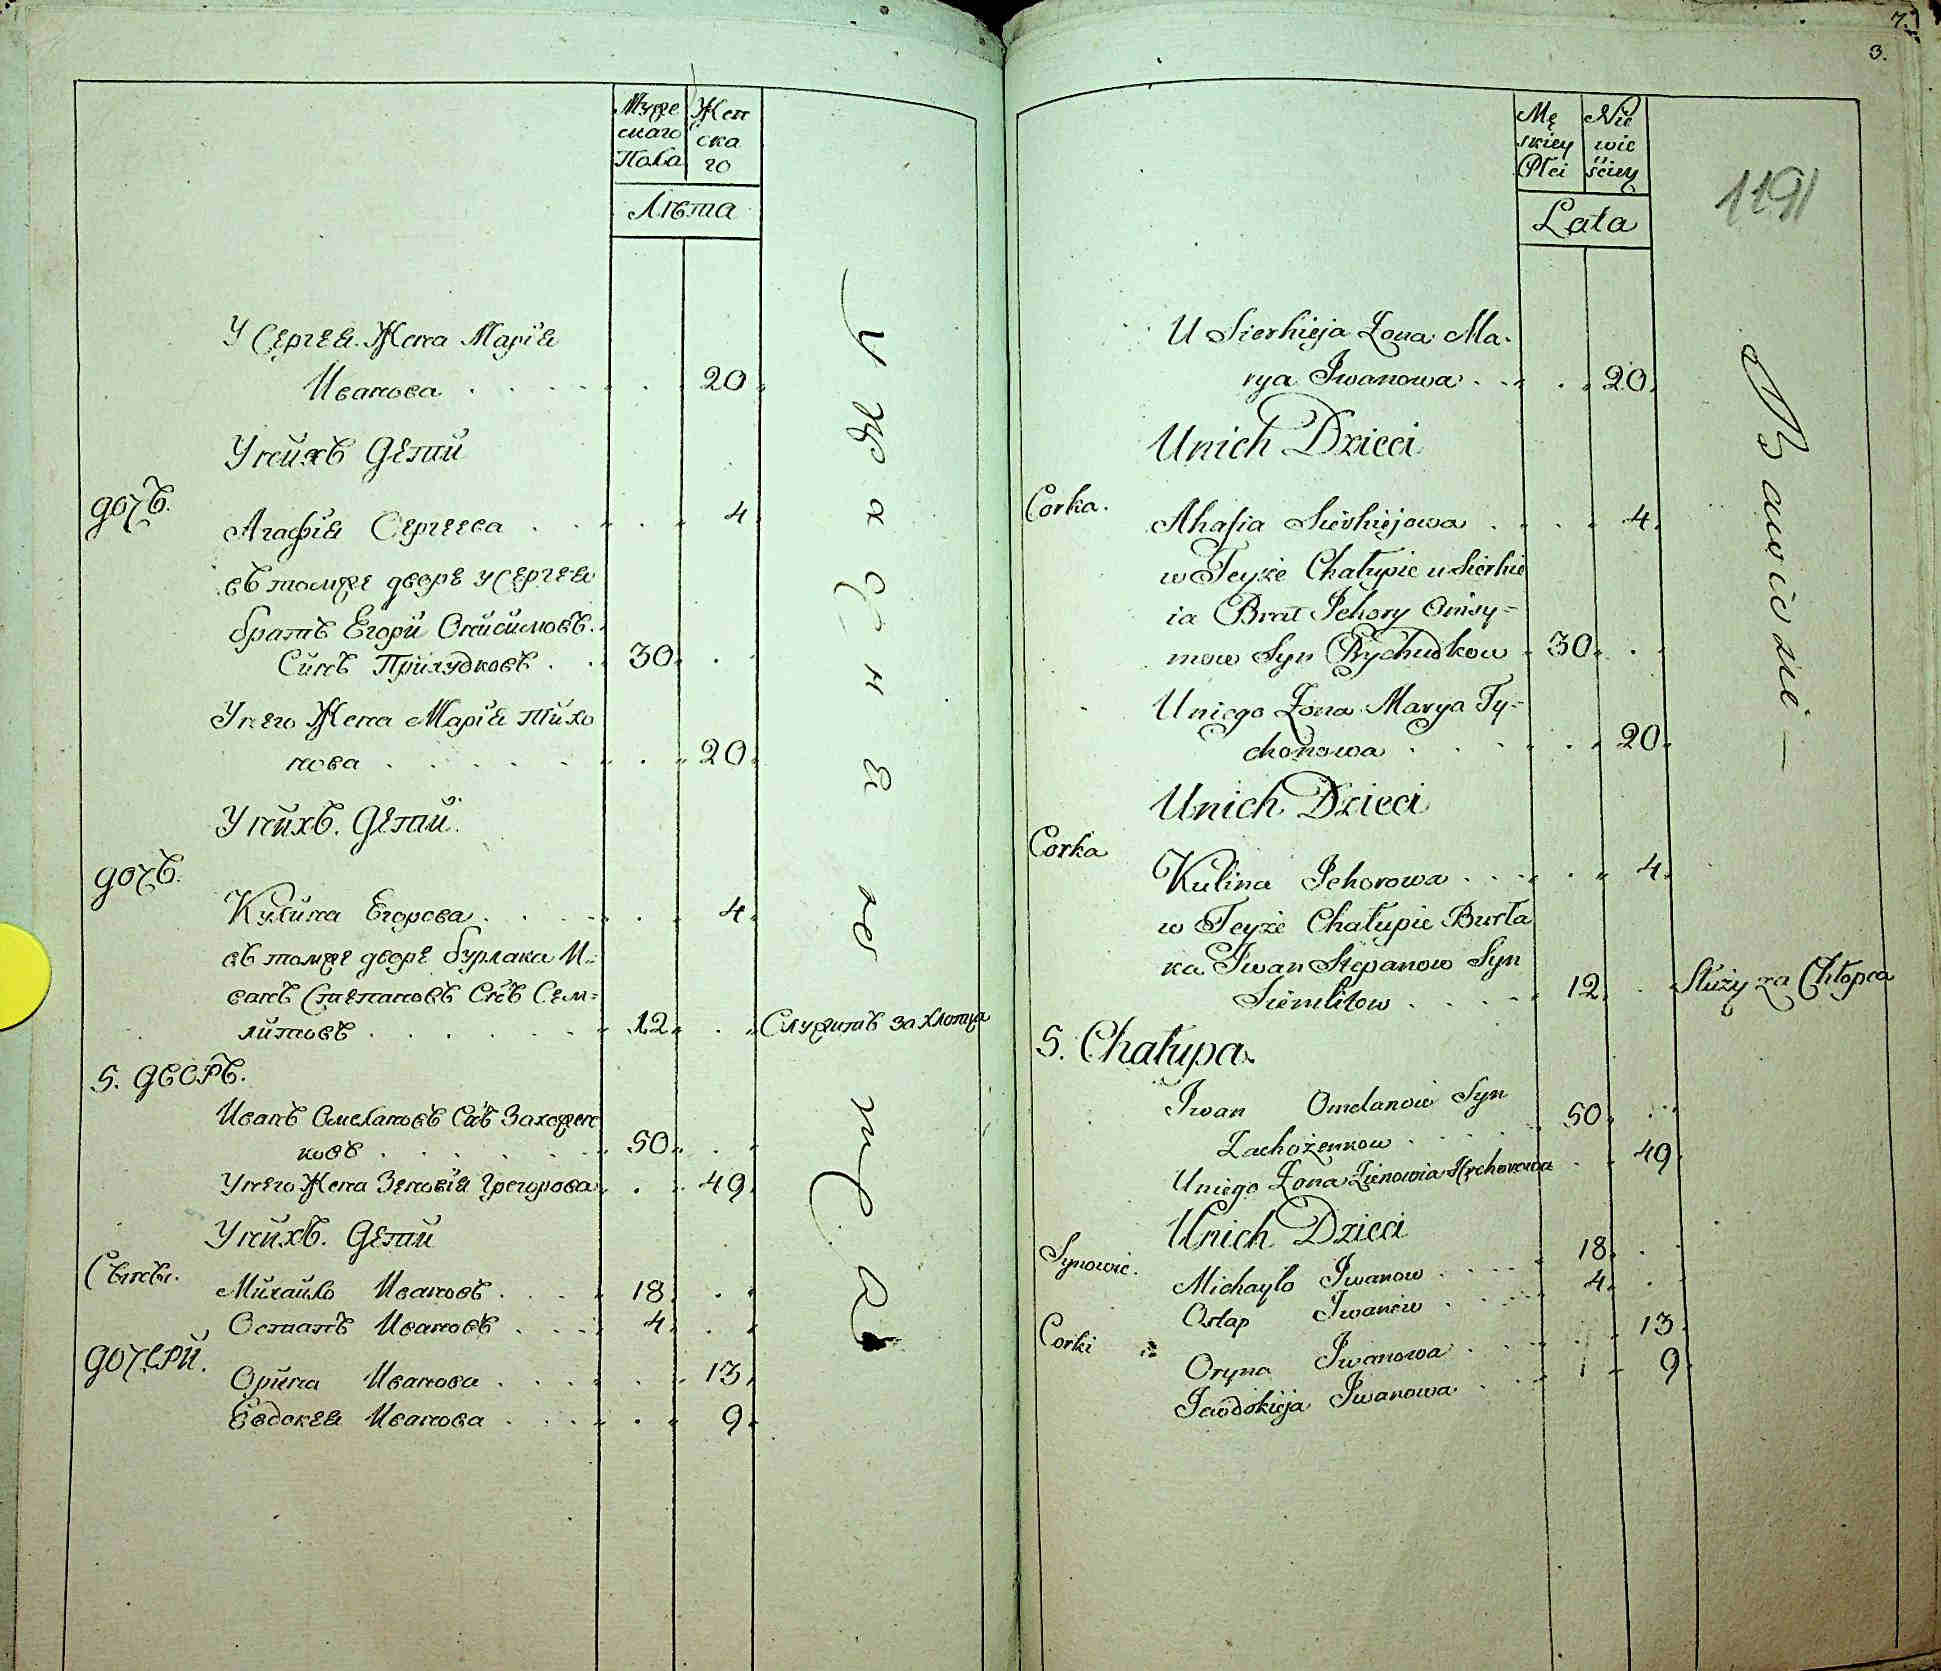 Муже Жен
скаго ска
Пола го
Лѣта
У Сергея Жена Марїя
Иванова . . . . . 20
У нихъ Дети
дочь.
Агафїя Сергеева . . . 4
въ томже дворе у Сергея
братъ Егори Онисимовъ
Синъ Прихудковъ . . 30
У него Жена Марїя Тихо
нова . . . . . 20
У нихъ. Дети.
дочь.
Кулина Егорова . . . 4
въ томже дворе бурлака И-
ванъ Степановъ Снъ Сем-
литовъ . . . . . 12 Служитъ за хлопца
5. дворъ.
Иванъ Омеляновъ Снъ Захожен
ковъ . . . . . 50
У него Жена Зеновїя Грегорова . 49
У нихъ. Дети
Сыны.
Михайло Ивановъ . . . 18
Остапъ Ивановъ . . . 4
дочери.
Орина Иванова . . . 13
Евдокея Иванова . . . 9
7.
3.
Mę Nie
skiey wie
Płci ściey
Lata
1191
U Sierhieja Żona Ma-
rya Iwanowa . . . 20
Unich Dzieci
Corka.
Ahafia Sierhiejowa . . . 4
w Teyże Chałupie u Sierhie
ia Brat Jehory Onisy=
mow Syn Prychudkow 30
Uniego Żona Marya Ty=
chonowa . . . 20
Unich Dzieci
Corka
Kulina Jehorowa . . . 4
w Teyże Chałupie Burła
ka Iwan Stepanow Syn
Siemlitow . . . . 12 Służy za Chłopca
5. Chałupa.
Iwan Omelanow Syn
Zachożenkow . . . 50
Uniego Żona Zienowia Hrehorowa . 49
Unich Dzieci
Synowie.
Michayło Iwanow . . . 18
Ostap Iwanow . . . 4
Corki
Oryna Iwanowa . . . 13
Jewdokieja Iwanowa . . . 9